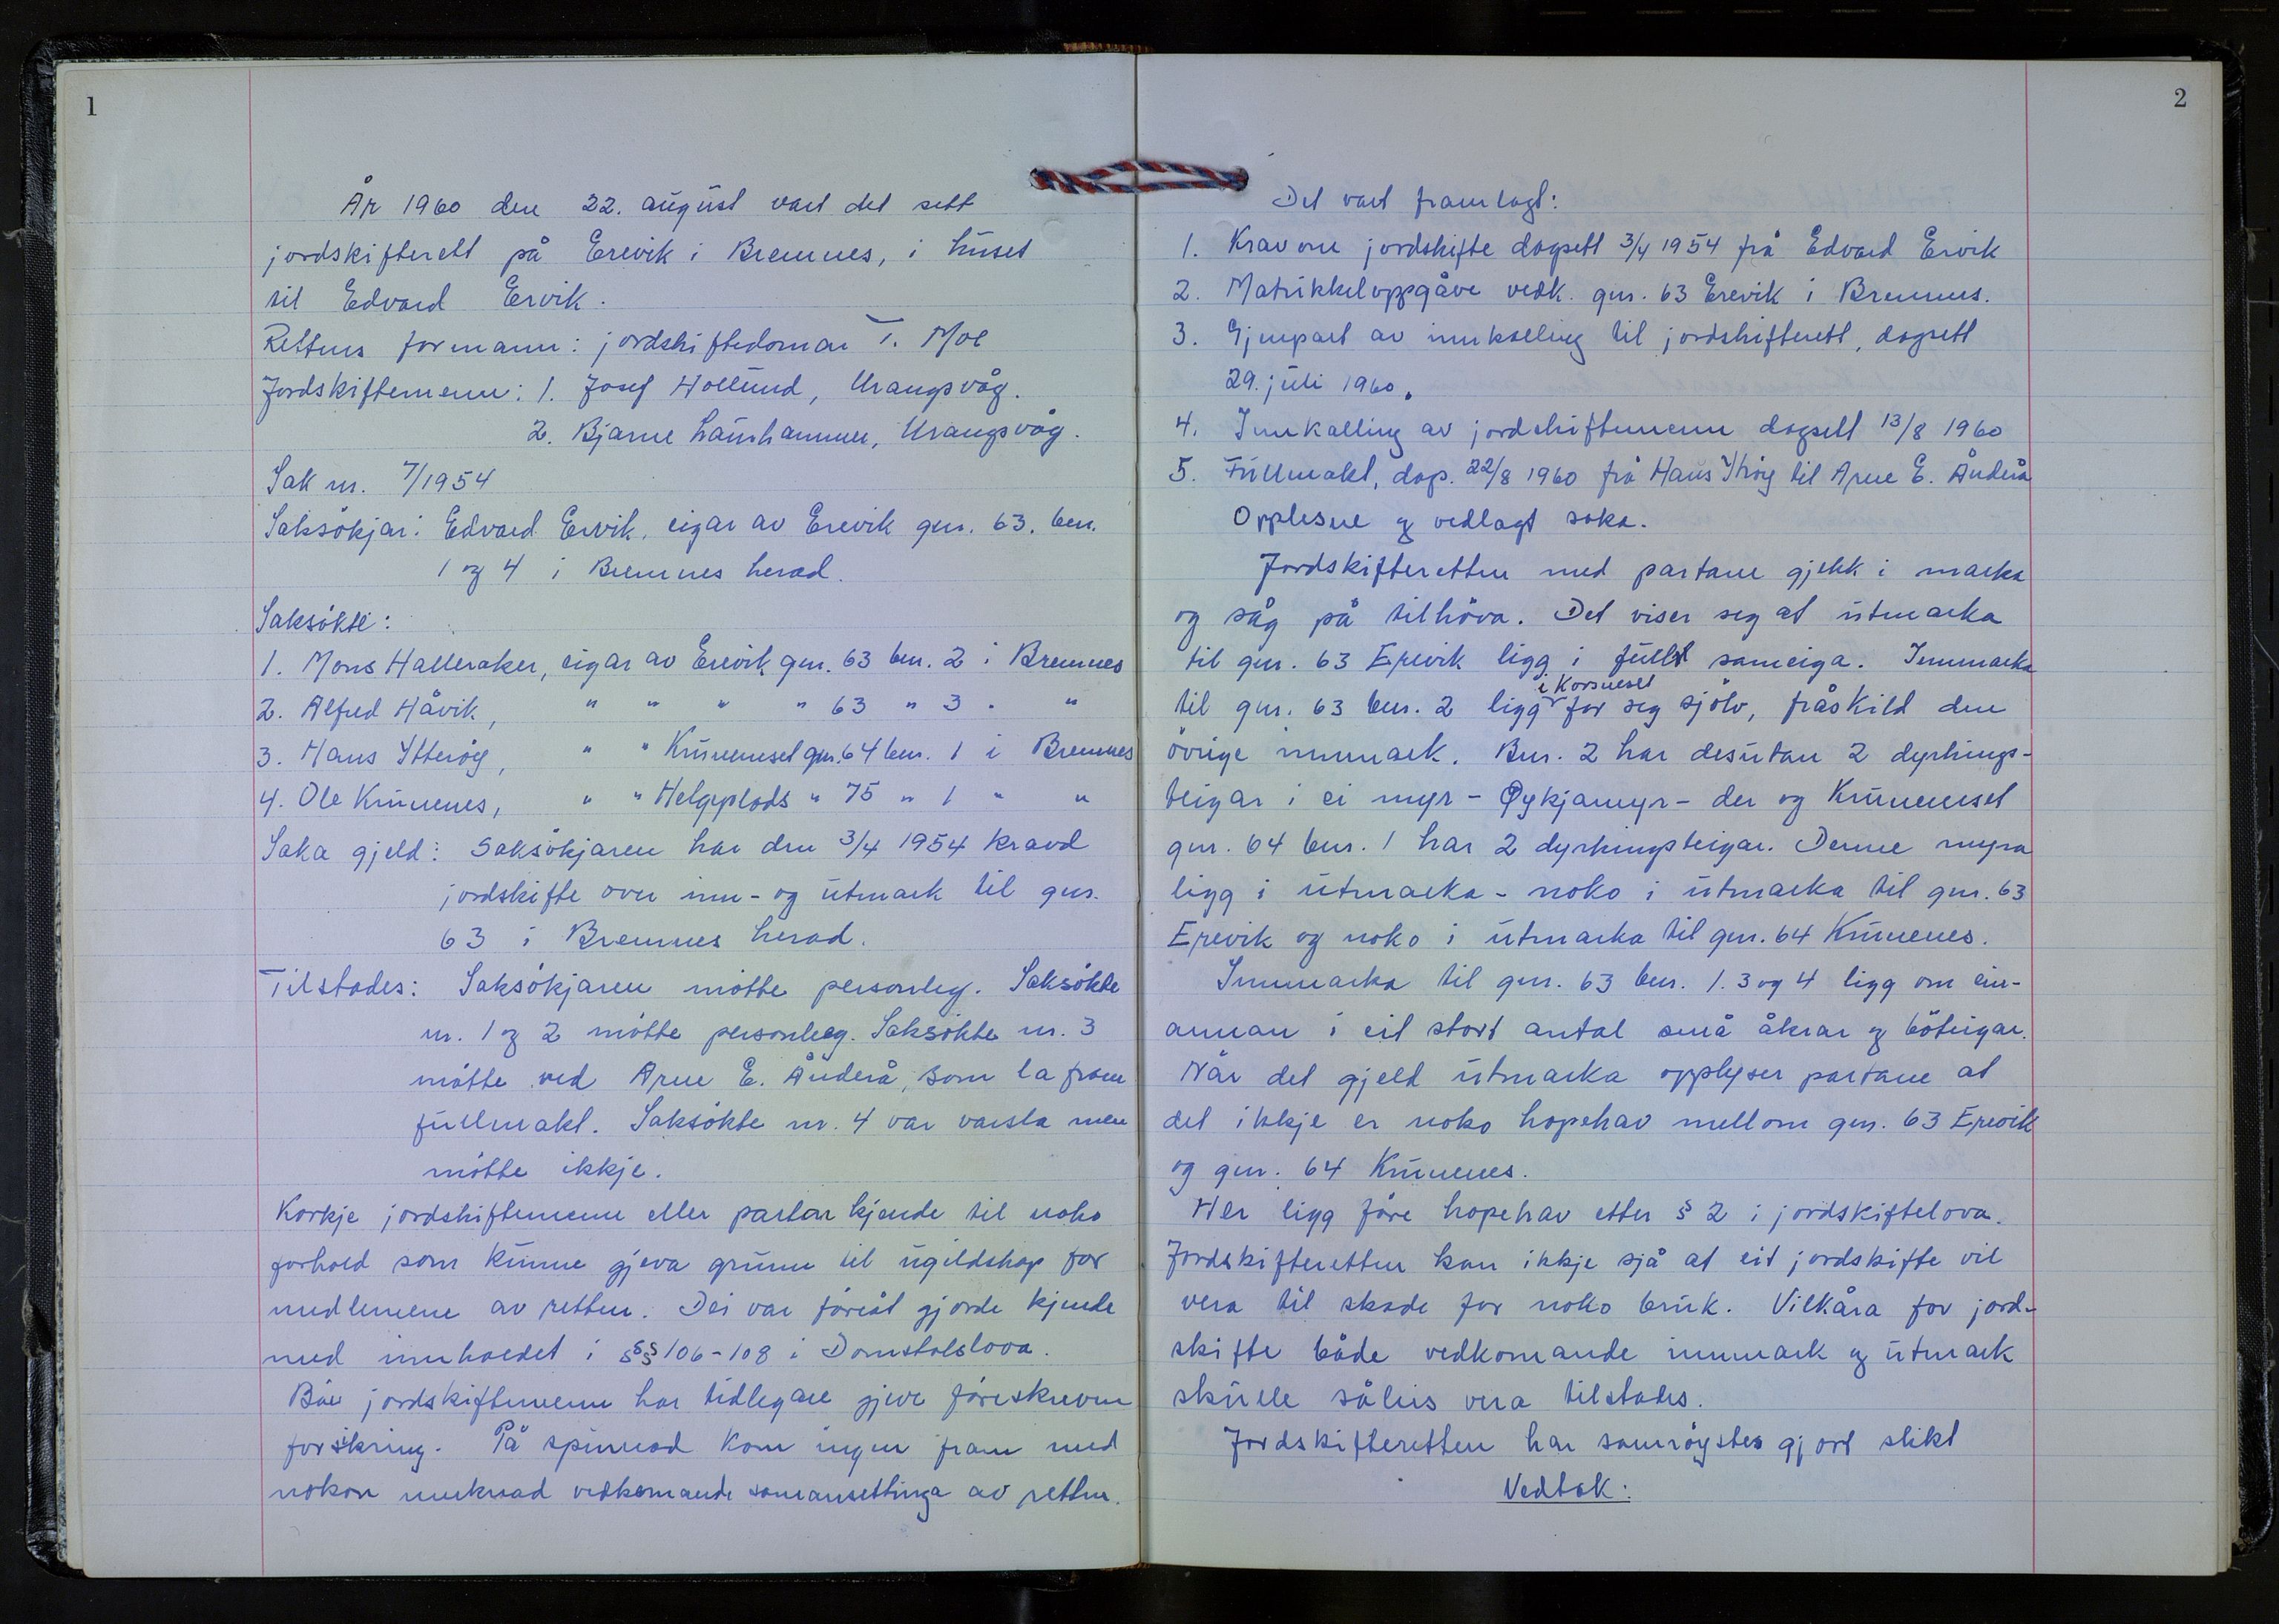 1
År 1960 den 22. august vart det sett
jordskifterett på Erevik i Bremnes, i huset
til Edvard Ervik.
Rettens formann: jordskiftedomar T. Moe
Jordskiftemenn: 1. Josef Hollund, Urangsvåg.
2. Bjarne Laurhammer, Urangsvåg.
Sak nr. 7/1954
Saksökjar: Edvard Ervik, eigar av Erevik gnr. 63. bnr.
1 og 4 i Bremnes herad.
Saksökte:
1. Mons Halleraker, eigar av Erevik gnr. 63 bnr. 2 i Bremnes
2. Alfred Håvik, " " " " 63 " 3 . "
3. Hans Ytterøy, " " Krunneset gnr. 64 bnr. 1 i Bremnes
4. Ole Krunenes, " " Helgeplads " 75 " 1 " "
Saka gjeld: Saksökjaren har den 3/4 1954 kravd
jordskifte over inn- og utmark til gnr.
63 i Bremnes herad.
Tilstades: Saksökjaren mötte personleg. Saksökte
nr. 1 og 2 mötte personleg. Saksökte nr. 3
mötte ved Arne E. Ånderå, som la fram
fullmakt. Saksökte nr. 4 var varsla men
mötte ikkje.
Korkje jordskiftemenn eller partar kjende til noko
forhold som kunne gjeva grunn til ugildskap for
medlemene av retten. Dei var föreåt gjorde kjende
med innhaldet i §§ 106-108 i Domstolslova.
Båe jordskiftemenn har tidlegare gjeve föreskreven
forsikring. På spurnad kom ingen fram med
nokon merknad vedkomande samansettinga av retten.
2
Det vart framlagt:
1. Krav om jordskifte dagsett 3/4 1954 frå Edvard Ervik
2. Matrikkeloppgåve vedk. gnr. 63 Erevik i Bremnes.
3. Gjenpart av innkalling til jordskifterett, dagsett
29. juli 1960.
4. Innkalling av jordskiftemenn dagsett 13/8 1960
5. Fullmakt, dag. 22/8 1960 frå Hans Ytröy til Arne E. Ånderå
Opplesne og vedlagt saka.
Jordskifteretten med partane gjekk i marka
og såg på tilhöva. Det viser seg at utmarka
til gnr. 63 Erevik ligg i fullt sameiga. Innmarka
i Korsneset
til gnr. 63 bnr. 2 ligg for seg sjölv, fråskild den
övrige innmark. Bnr. 2 har desutan 2 dyrkings-
teigar i ei myr - Øykjamyr - der og Krunneset
gnr. 64 bnr. 1 har 2 dyrkingsteigar. Denne myra
ligg i utmarka - noko i utmarka til gnr. 63
Erevik og noko i utmarka til gnr. 64 Krunenes.
Innmarka til gnr. 63 bnr. 1. 3 og 4 ligg om ein-
annan i eit stort antal små åkrar og böteigar.
Når det gjeld utmarka opplyser partane at
det ikkje er noko hopehav mellom gnr. 63 Erevik
og gnr. 64 Krunenes.
Her ligg före hopehav etter § 2 i jordskiftelova.
Jordskifteretten kan ikkje sjå at eit jordskifte vil
vera til skade for noko bruk. Vilkåra for jord-
skifte både vedkomande innmark og utmark
skulle såleis vera tilstades.
Jordskifteretten har samröystes gjort slikt
Vedtak: